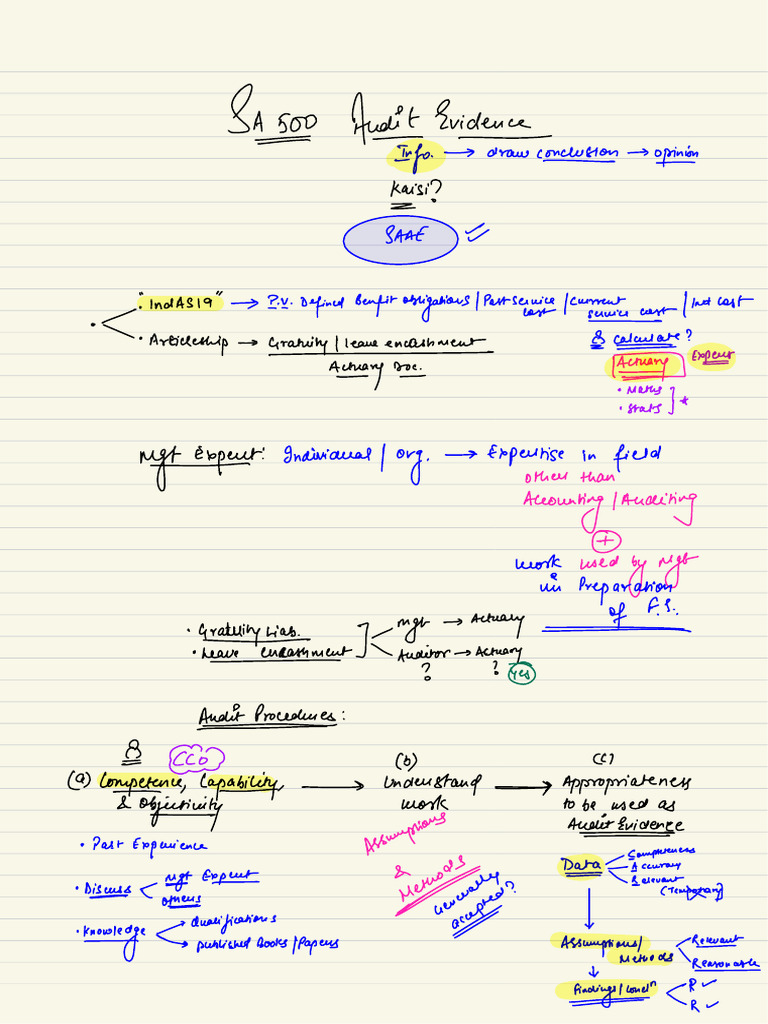 SA 500 Audit Evidence
Info. → draw conclusion → opinion
Kaisi?
SAAE
• "IndAS19" → P.V. Defined Benefit obligations / Past service cost / Current service cost / Int cost
• Articleship → Gratuity / leave encashment
Actuary Doc.
Calculate?
Actuary Expert
• Maths
• Stats
Mgt Expert: Individual / org. → Expertise in field
other than
Accounting / Auditing
+
work used by Mgt
in Preparation
of F.S.
• Gratuity Liab.
• Leave encashment
Mgt → Actuary
Auditor → Actuary
? ? Yes
Audit Procedures:
CCO
(a) Competence, Capability, & Objectivity
→ (b) Understand work
→ (c) Appropriateness to be used as Audit Evidence
• Past Experience
• Discuss
Mgt Expert
others
• Knowledge
Qualifications
Published Books / Papers
Assumptions
&
Methods
Generally accepted?
Data
Completeness
Accuracy
Relevant
Assumptions / Methods
Relevant
Reasonable
Findings / Concln
R ✓
R ✓